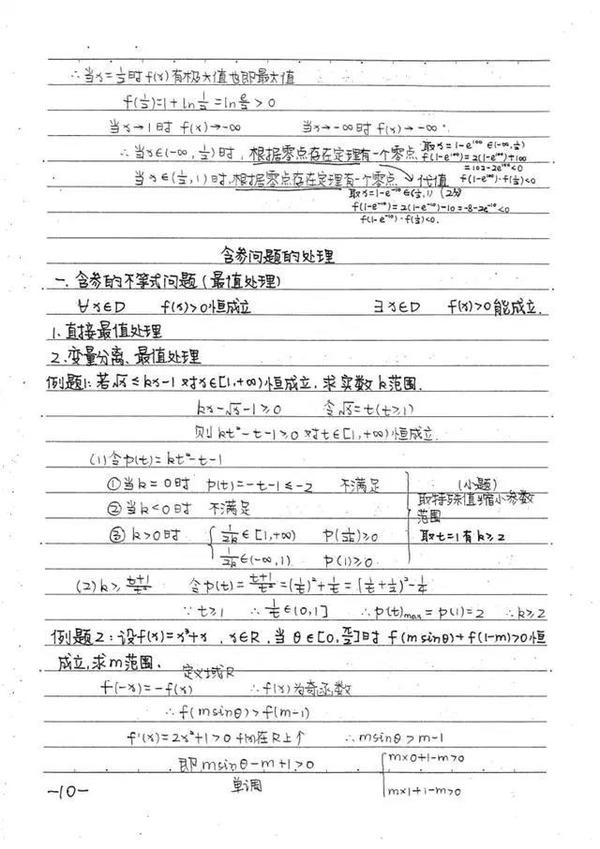 ∴当x=1/2时f(x)有极大值也即最大值
f(1/2)=1+ln1/2=ln e/2>0
当x→1时 f(x)→-∞ 当x→-∞时 f(x)→-∞.
∴当x∈(-∞,1/2)时,根据零点存在定理有一个零点 取x=1-e^100∈(-∞,1/2)
f(1-e^100)=2(1-e^100)+100
=102-2e^100<0
当x∈(1/2,1)时,根据零点存在定理有一个零点 → 代值 f(1-e^100)·f(1/2)<0
取x=1-e^-10∈(1/2,1) (2分)
f(1-e^-10)=2(1-e^-10)-10=-8-2e^-10<0
f(1-e^-10)·f(1/2)<0.
含参问题的处理
一.含参的不等式问题(最值处理)
∀x∈D f(x)>0恒成立 ∃x∈D f(x)>0能成立.
1.直接最值处理
2.变量分离、最值处理
例题1:若√x≤kx-1对x∈[1,+∞)恒成立,求实数k范围.
kx-√x-1≥0 令√x=t(t≥1)
则kt²-t-1≥0对t∈[1,+∞)恒成立.
(1)令p(t)=kt²-t-1
①当k=0时 p(t)=-t-1≤-2 不满足 (小题)
取特殊值缩小参数
②当k<0时 不满足 范围
③k>0时 { 1/2k∈[1,+∞) p(1/2k)≥0 取t=1有k≥2
1/2k∈(-∞,1) p(1)≥0
(2)k≥t+1/t² 令p(t)=t+1/t²=(1/t)²+1/t=(1/t+1/2)²-1/4
∵t≥1 ∴1/t∈(0,1] ∴p(t)max=p(1)=2 ∴k≥2
例题2:设f(x)=x³+x,x∈R.当θ∈[0,π/2]时 f(msinθ)+f(1-m)>0恒
成立,求m范围.
定义域R
f(-x)=-f(x) ∴f(x)为奇函数
∴f(msinθ)>f(m-1)
f'(x)=2x²+1>0 f(x)在R上↑ ∴msinθ>m-1
即msinθ-m+1>0 { m×0+1-m>0
单调 m×1+1-m>0
-10-